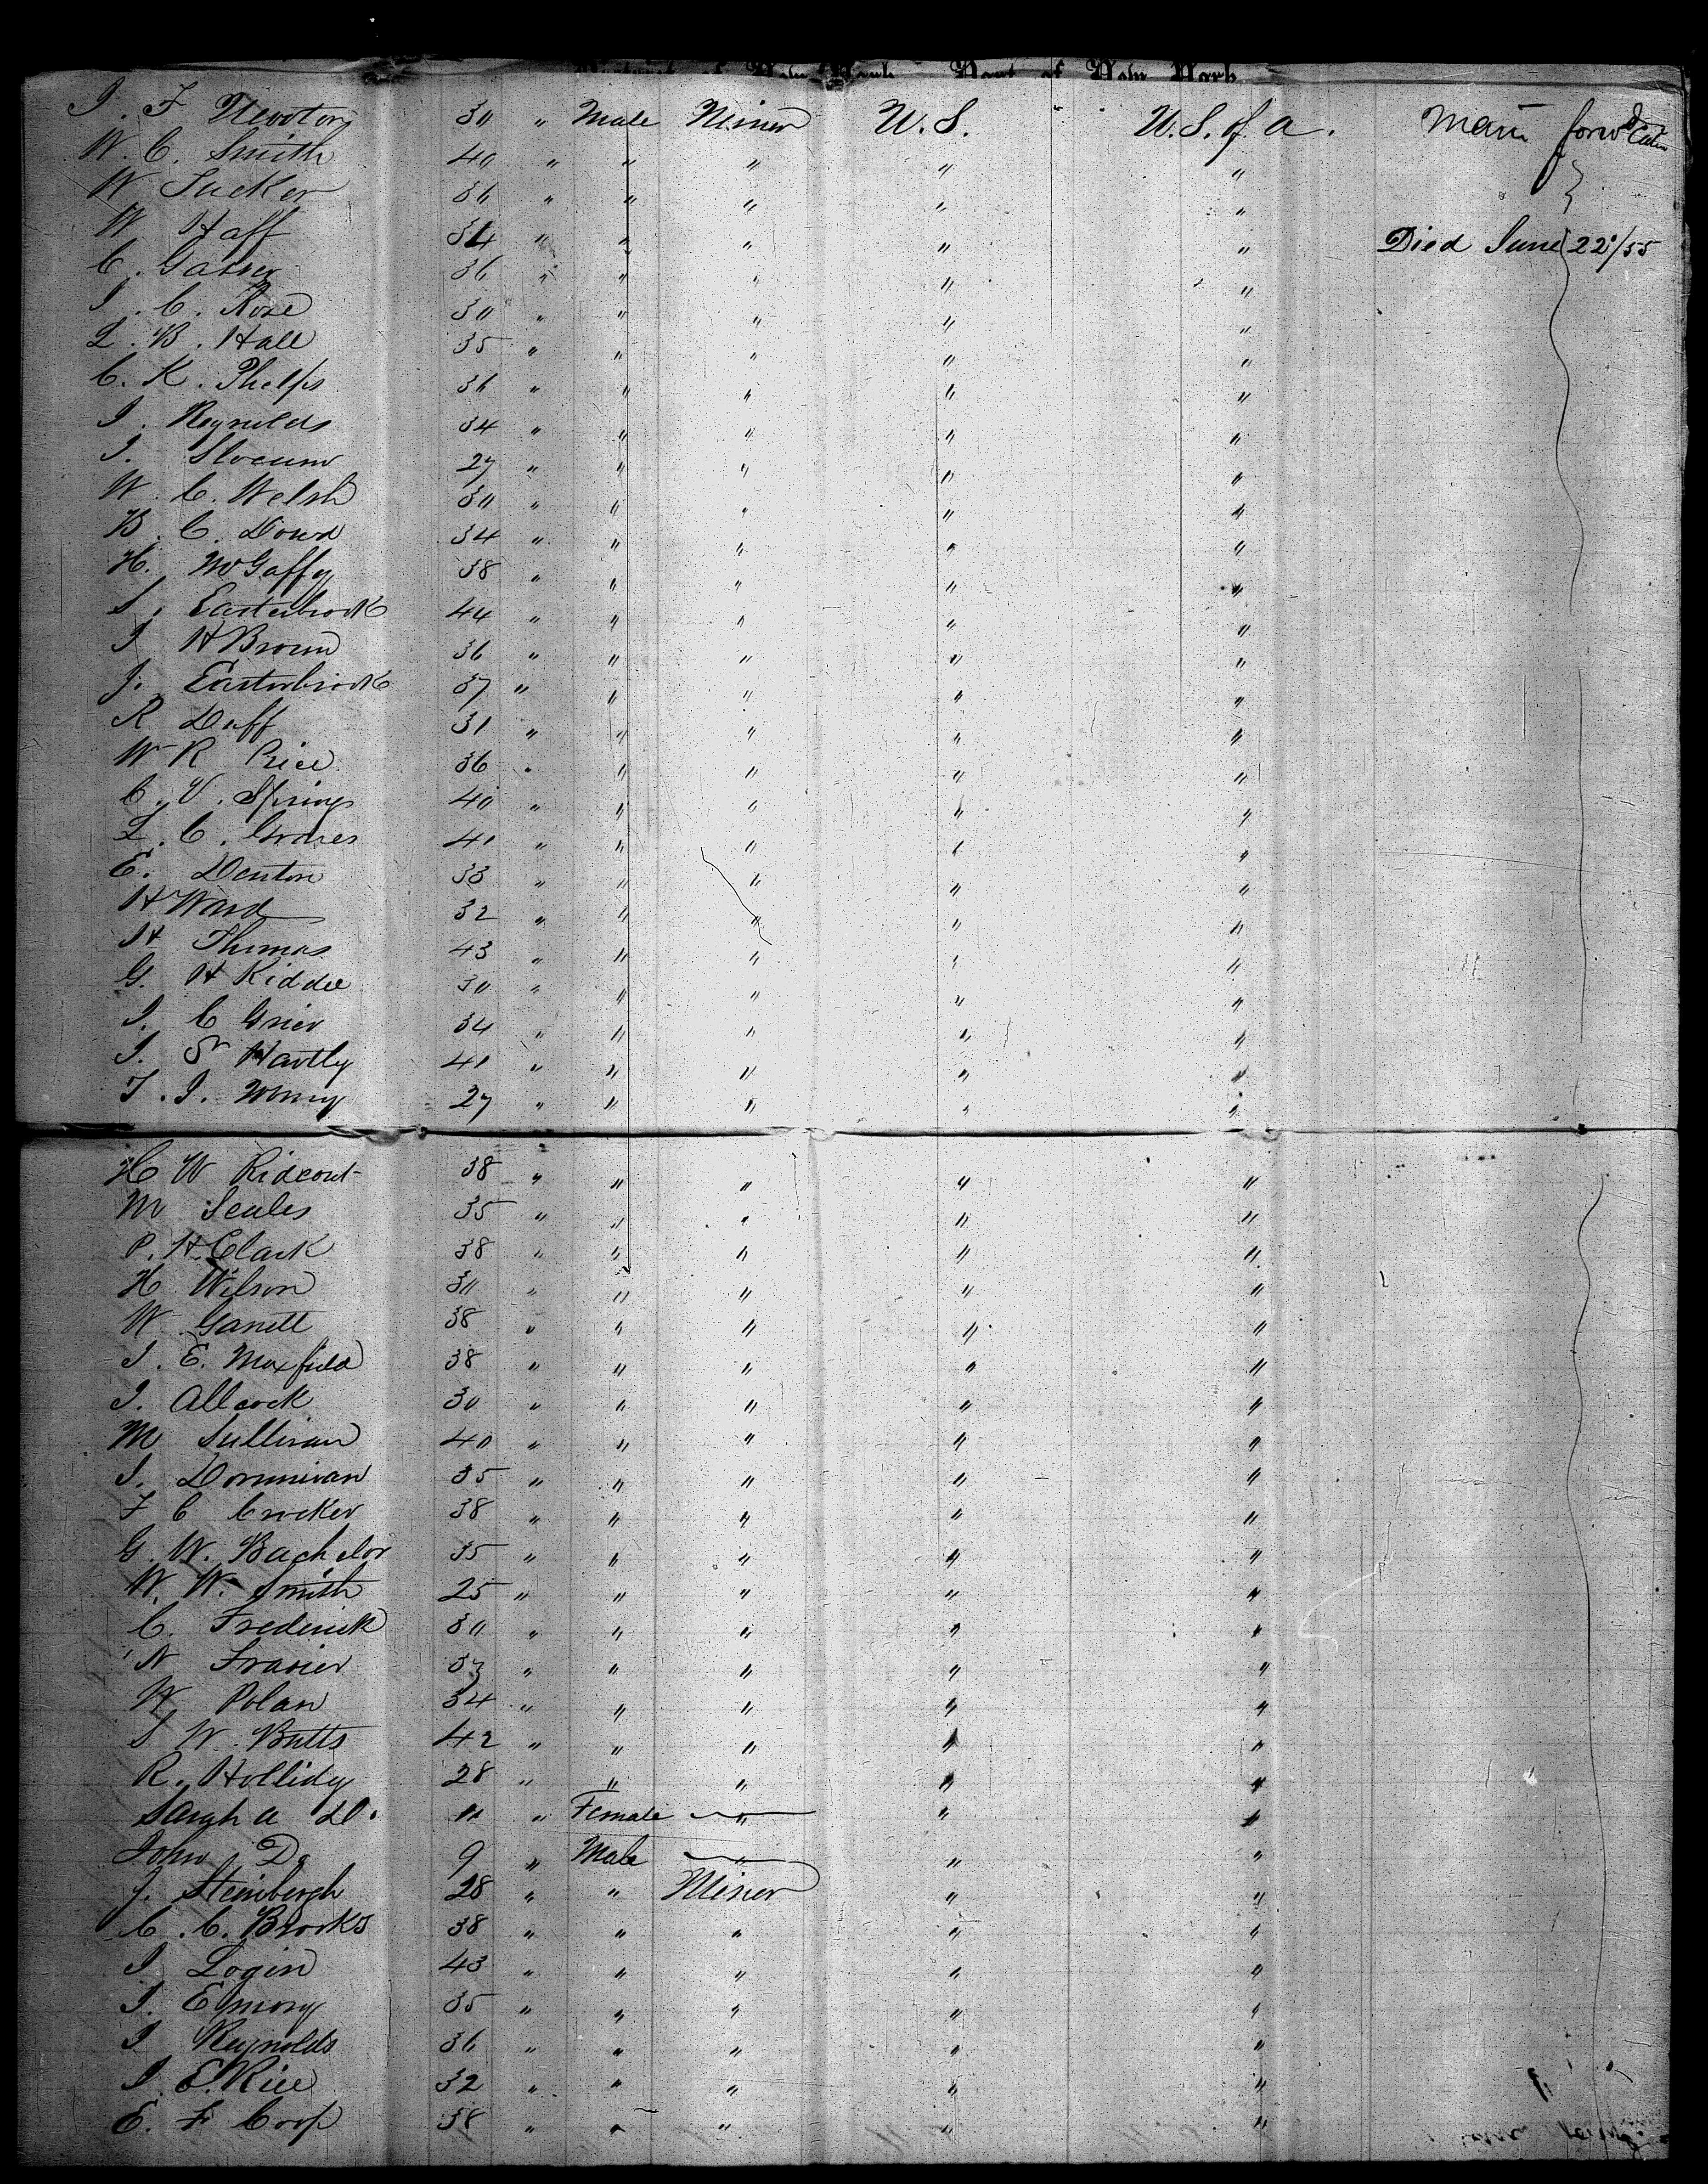 District of New York Port of New York
J. F Newton 30 " Male Miner U.S. U.S. of a. Main forwd Cabin
W. C. Smith 40 " " " " "
W Tucker 36 " " " " "
W Haff 34 " " " " " Died June 22/55
C. 36 " " " " "
J. C. Rose 30 " " " " "
L. B. Hall 35 " " " " "
C. K. Phelps 36 " " " " "
J. Reynolds 34 " " " " "
J. Slocum 27 " " " " "
W. C. Welsh 30 " " " " "
B. C. Dowd 34 " " " " "
H. McGaffy 38 " " " " "
S. Easterbrook 44 " " " " "
J H Brown 36 " " " " "
J. Easterbrook 37 " " " " "
R Duff 31 " " " " "
W R Price 36 " " " " "
C. V. Springs 40 " " " " "
L. C. Graves 41 " " " " "
E. Denton 33 " " " " "
H Ward 32 " " " " "
H Thomas 43 " " " " "
G. H Kidder 30 " " " " "
J. C Grier 34 " " " " "
J. S Hartly 41 " " " " "
T. J. 27 " " " " "
H W Rideout 38 " " " " "
M Scales 35 " " " " "
P. H. Clark 38 " " " " "
H Wilson 30 " " " " "
W Garrett 38 " " " " "
J. E. Maxfield 38 " " " " "
J. Allcock 30 " " " " "
M Sullivan 40 " " " " "
J. Donnivan 35 " " " " "
F C Crocker 38 " " " " "
G. W. Bachelor 35 " " " " "
W. W. Smith 25 " " " " "
C. Frederick 30 " " " " "
N Frasier 37 " " " " "
W Polan 34 " " " " "
S W. Butts 42 " " " " "
R. Hollidy 28 " " " " "
Sarah a Do. 11 " Female " " "
John Do 9 " Male " " "
J. Steinbergh 28 " " Miner " "
C. C. Brooks 38 " " " " "
J Login 43 " " " " "
J. Emory 35 " " " " "
J Reynolds 36 " " " " "
J. E. Rice 32 " " " " "
E. F Corp 38 " " " " "